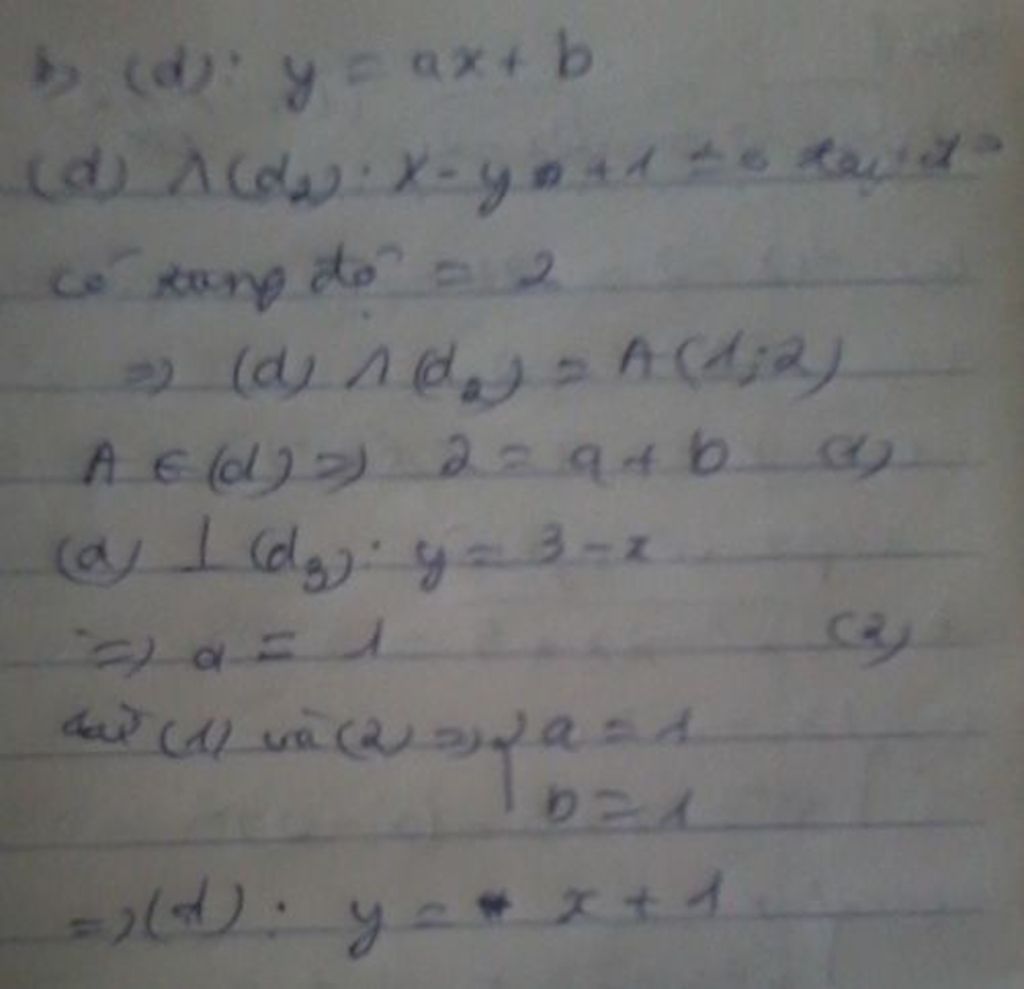 b) (d): y = ax + b
(d) ∩ (d₂): x - y + 1 = 0 tại
có tung độ = 2
=> (d) ∩ (d₂) = A(1;2)
A ∈ (d) => 2 = a + b (1)
(d) ⊥ (d₃): y = 3 - x
=> a = 1 (2)
từ (1) và (2) => { a = 1
b = 1
=> (d): y = x + 1